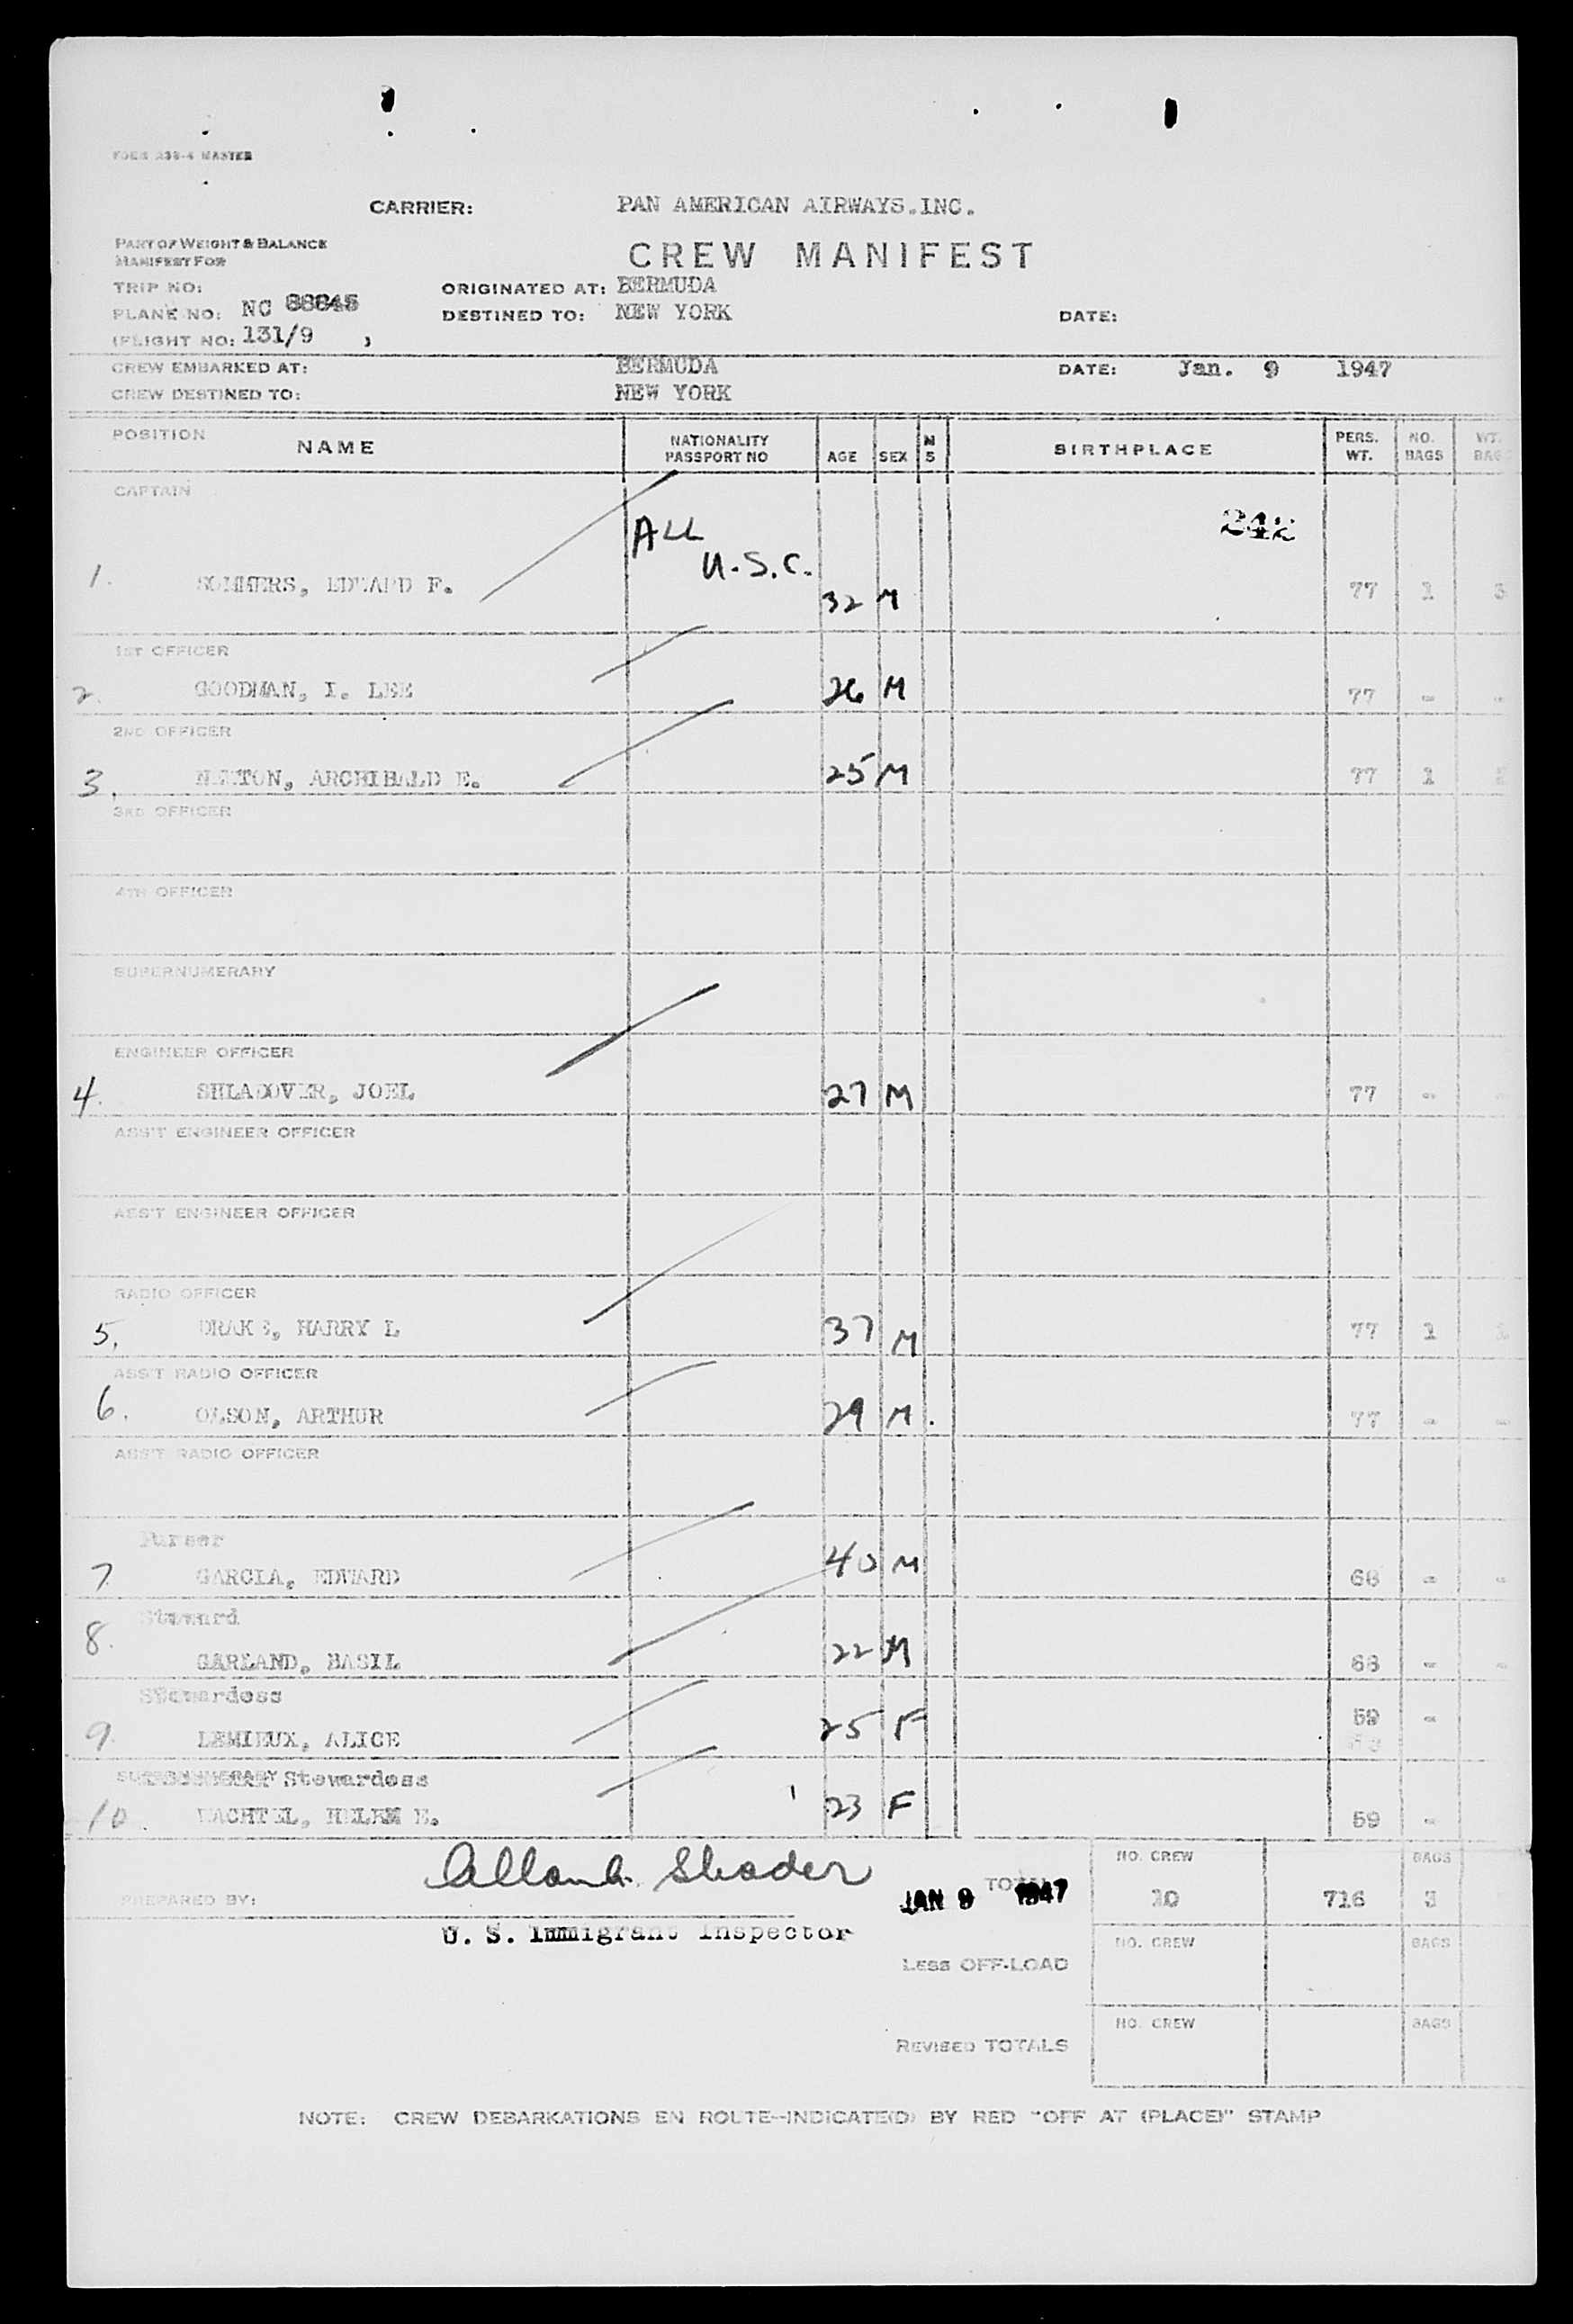 FORM 238-4 MASTER
CARRIER: PAN AMERICAN AIRWAYS.INC.
PART OF WEIGHT & BALANCE
MANIFEST FOR
CREW MANIFEST
TRIP NO:
ORIGINATED AT: BERMUDA
PLANE NO: NC 88845
DESTINED TO: NEW YORK
DATE:
(FLIGHT NO: 131/9 )
CREW EMBARKED AT: BERMUDA
DATE: Jan. 9 1947
CREW DESTINED TO: NEW YORK
POSITION NAME NATIONALITY PASSPORT NO AGE SEX M S BIRTHPLACE PERS. WT. NO. BAGS WT.
CAPTAIN
242
ALL
U.S.C.
1. SOMMERS, EDWARD F. 32 M 77 1 3
1ST OFFICER
2. GOODMAN, I. LEE 26 M 77 - -
2ND OFFICER
3. NEWTON, ARCHIBALD E. 25 M 77 1
3RD OFFICER
4TH OFFICER
SUPERNUMERARY
ENGINEER OFFICER
4. SHLADOVER, JOEL 27 M 77 - -
ASS'T ENGINEER OFFICER
ASS'T ENGINEER OFFICER
RADIO OFFICER
5. DRAKE, HARRY L 37 M 77 1
ASS'T RADIO OFFICER
6. OLSON, ARTHUR 29 M. 77 - -
ASS'T RADIO OFFICER
Purser
7 GARCIA, EDWARD 40 M 68 - -
Steward
8. GARLAND, BASIL 22 M 68 - -
Stewardess
9. LEMIEUX, ALICE 25 F 59 -
SUPERNUMERARY Stewardess
10. WACHTEL, HELEN E. 23 F 59 -
Allan A. Shader
PREPARED BY:
U. S. Immigrant Inspector
JAN 9 1947
TOTAL NO. CREW 10 716 BAGS 3
LESS OFF-LOAD NO. CREW BAGS
REVISED TOTALS NO. CREW BAGS
NOTE: CREW DEBARKATIONS EN ROUTE--INDICATE(D) BY RED "OFF AT (PLACE)" STAMP